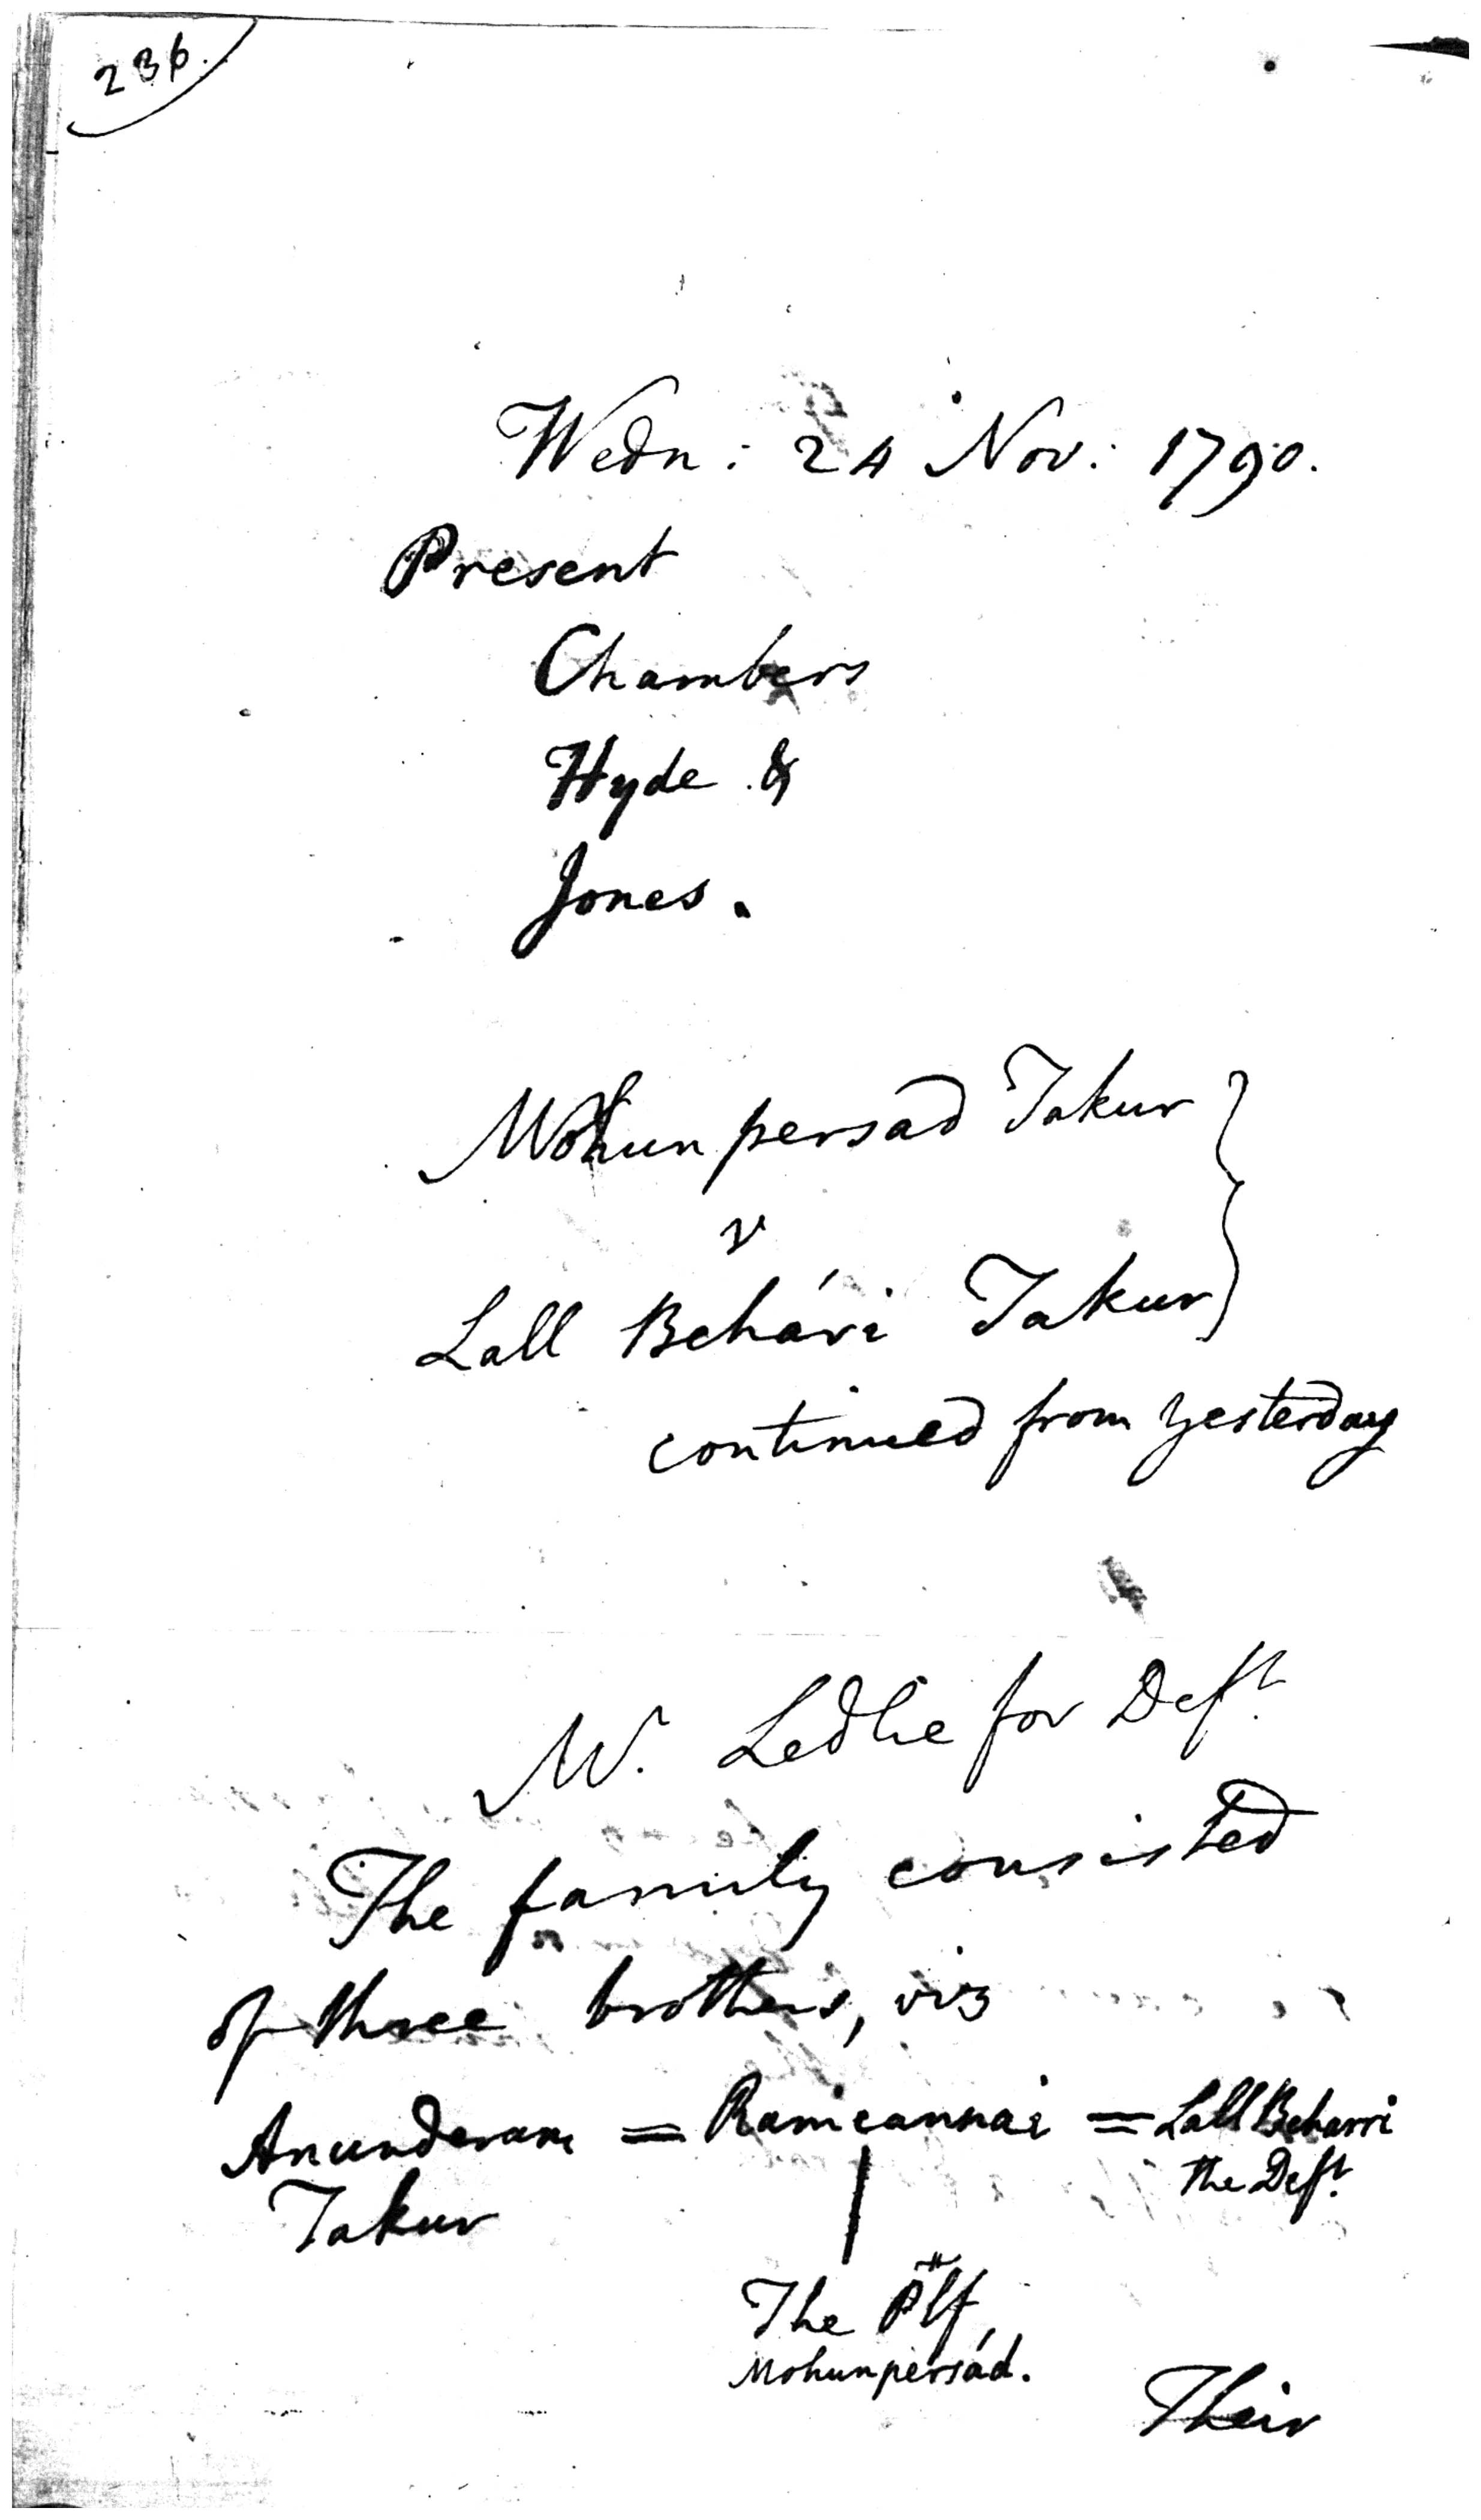 236.
Wedn: 24 Nov: 1790.
Present
Chambers
Hyde &
Jones.
Mohunpersad Takur
v
Lall Behári Takur
continued from yesterday
M. Ledlie for Deft.
The family consisted
of three brothers, viz
Anunderam = Ramcannai = Lall Beharri
Takur the Deft.
The Plf
Mohunpersád.
Their